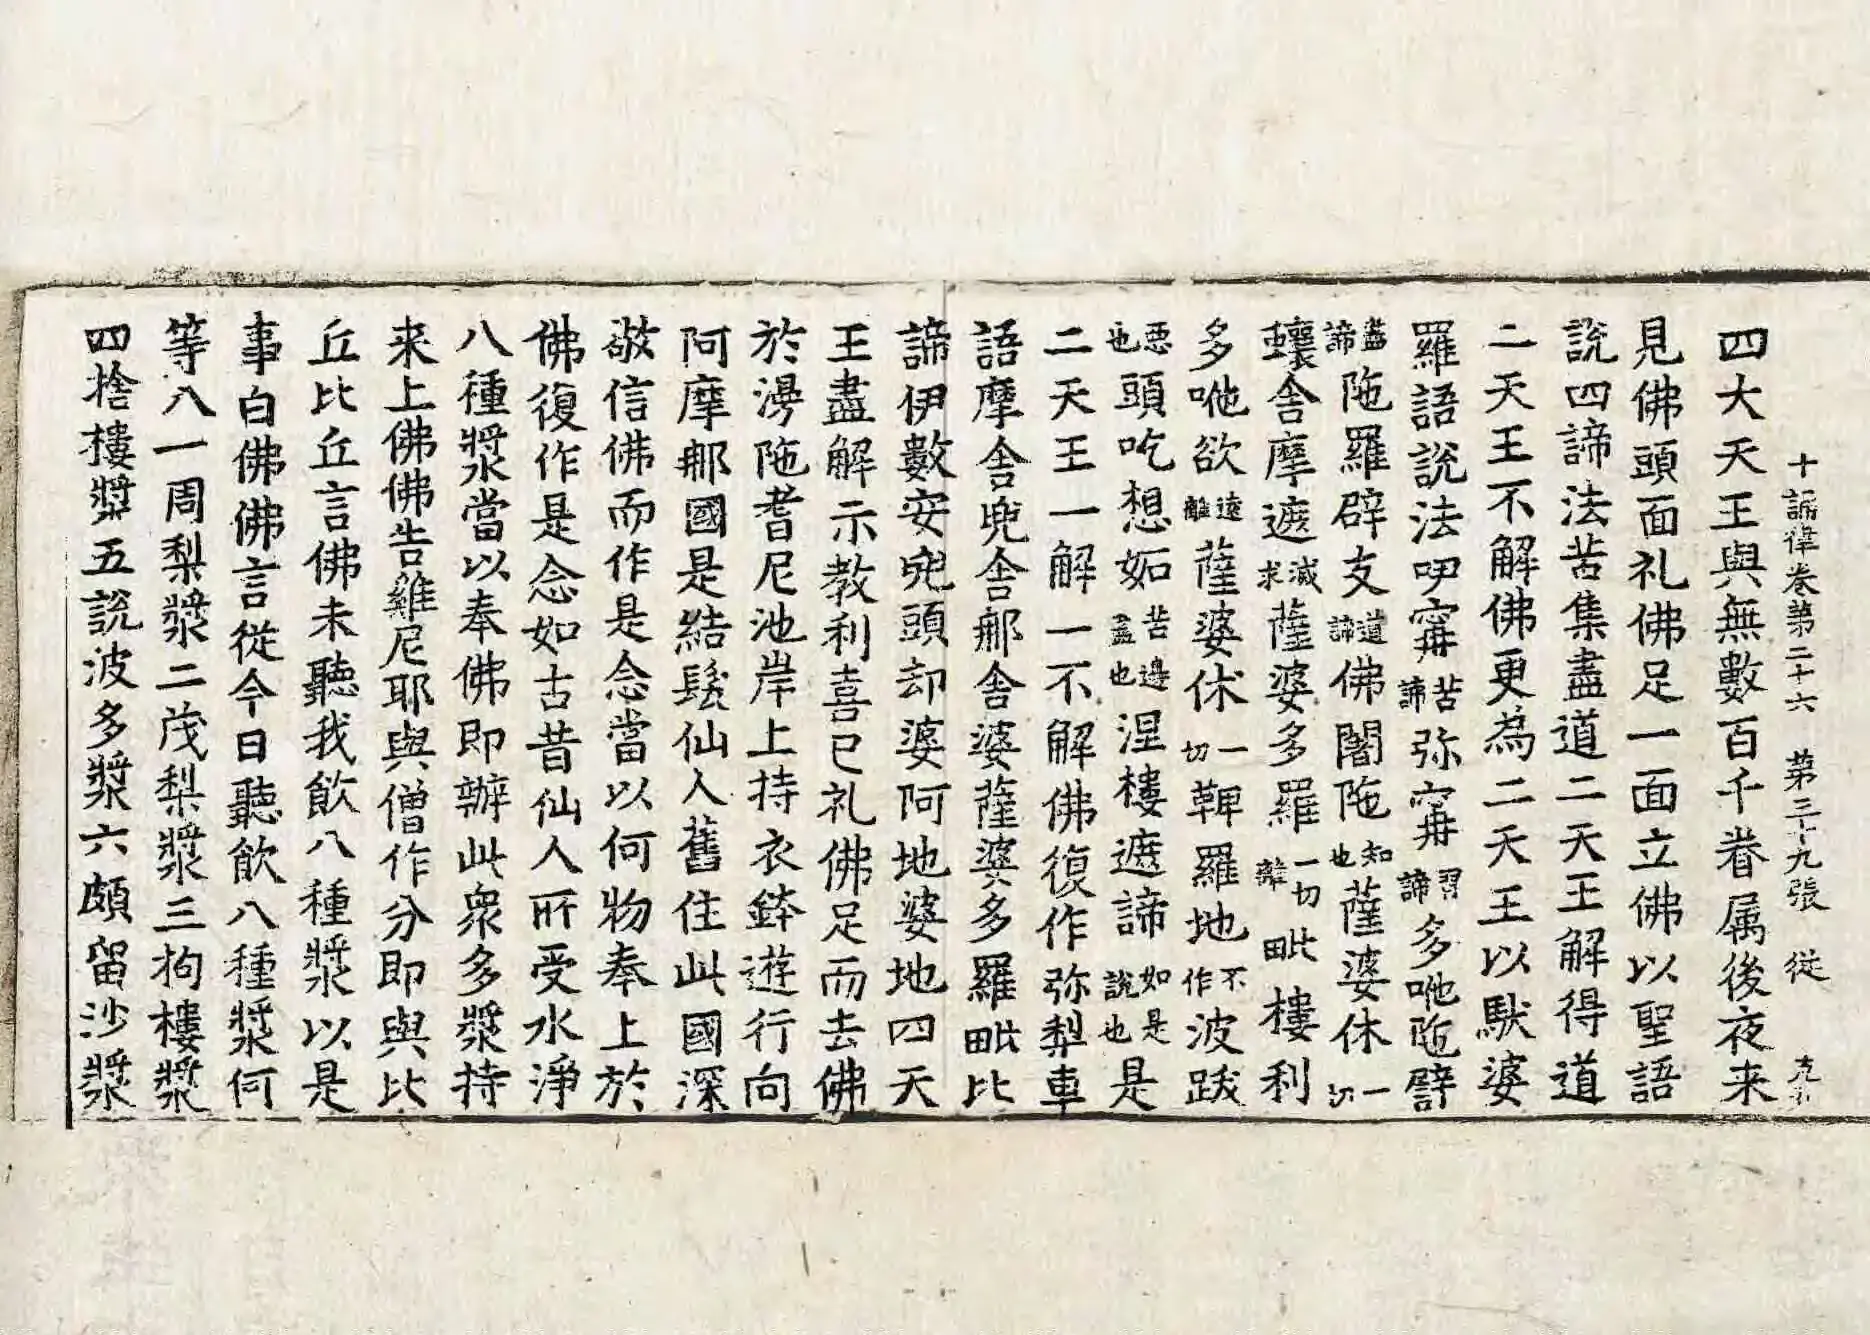 十誦律卷第二十六 第三十九張 從
四大天王與無數百千眷属後夜来
見佛頭面礼佛足一面立佛以聖語
說四諦法苦集盡道二天王解得道
二天王不解佛更為二天王以馱婆
羅語說法吚甯苦諦弥甯習諦多咃陁譬
盡諦陁羅辟支道諦佛闍陁知也薩婆休一切
蠰舍摩遮滅求薩婆多羅一切離毗樓利
多咃欲遠離薩婆休一切鞞羅地不作波跋
悪也頭吃想妬苦邊盡也涅樓遮諦如是說也是
二天王一解一不解佛復作弥梨車
語摩舍兜舍那舍婆薩婆多羅毗比
諦伊數安兜頭却婆阿地婆地四天
王盡解示教利喜已礼佛足而去佛
於漫陁耆尼池岸上持衣鉢遊行向
阿摩那國是結髮仙人舊住此國深
敬信佛而作是念當以何物奉上於
佛復作是念如古昔仙人所受水淨
八種漿當以奉佛即辦此衆多漿持
来上佛佛告雞尼耶與僧作分即與比
丘比丘言佛未聽我飲八種漿以是
事白佛佛言從今日聽飲八種漿何
等八一周梨漿二茂梨漿三拘樓漿
四捨樓漿五說波多漿六頗留沙漿